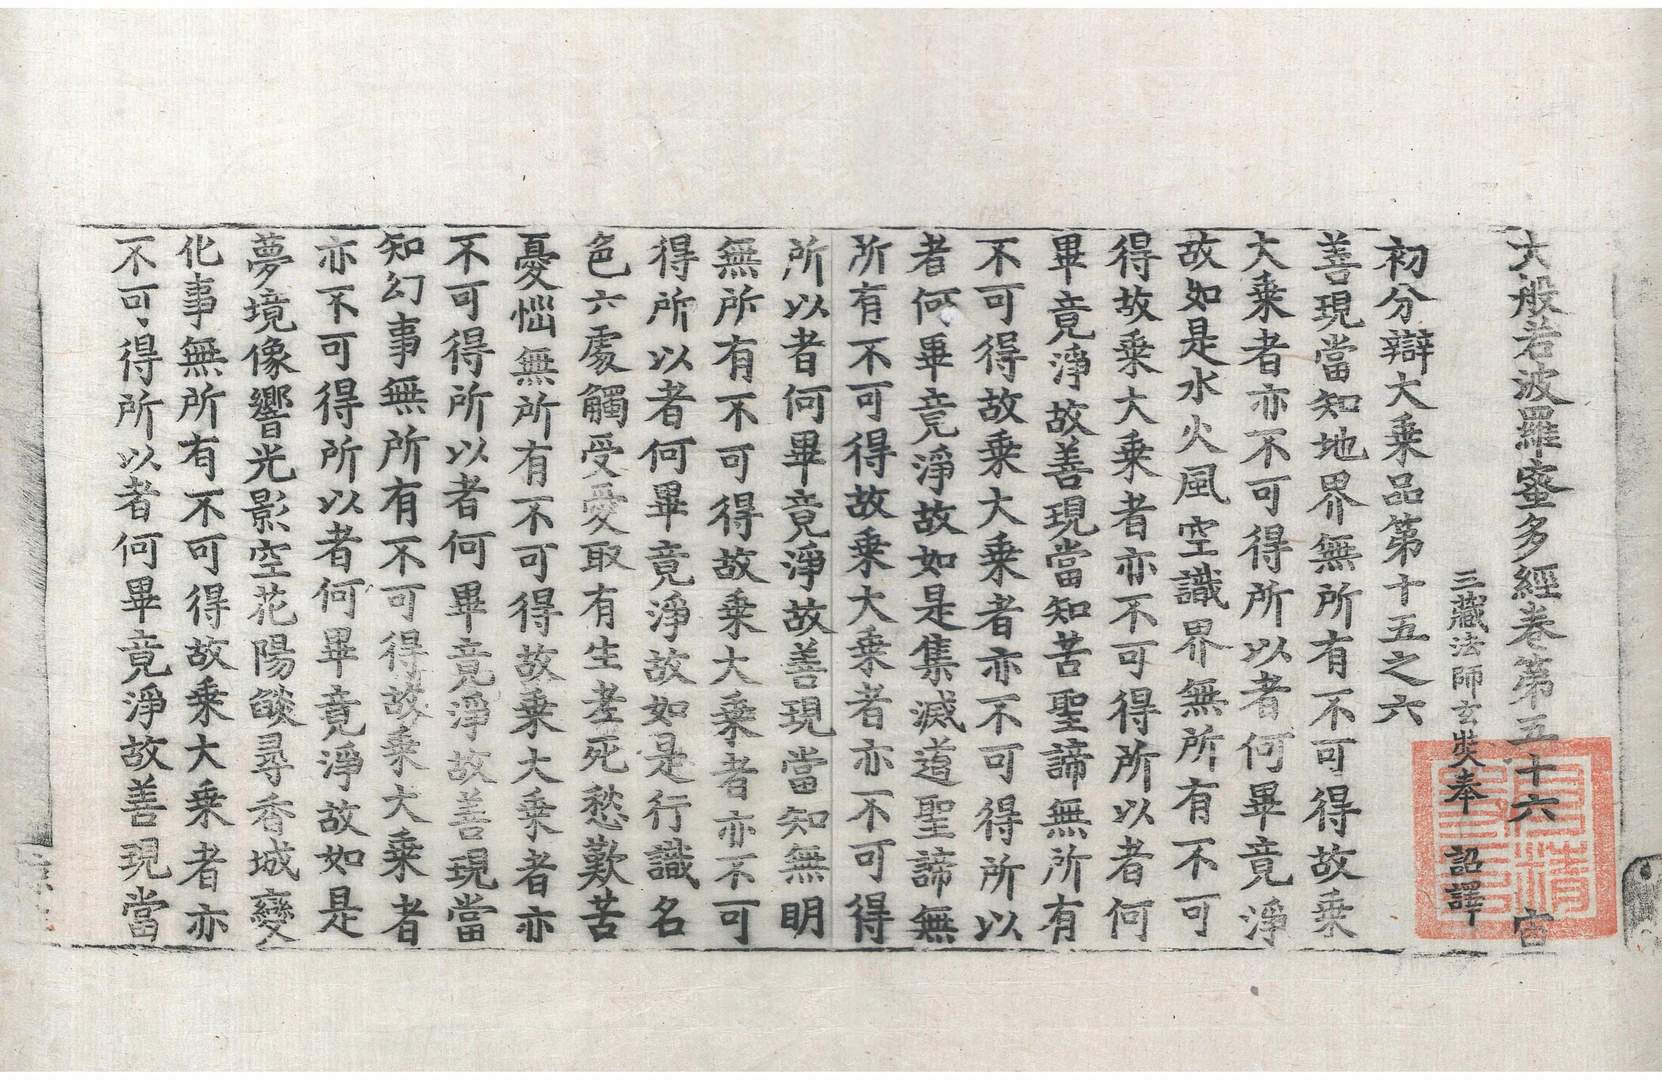 大般若波羅蜜多經卷第五十六　宙
三藏法師玄奘奉　詔譯
初分辯大乗品第十五之六
善現當知地界無所有不可得故乗
大乗者亦不可得所以者何畢竟淨
故如是水火風空識界無所有不可
得故乗大乗者亦不可得所以者何
畢竟淨故善現當知苦聖諦無所有
不可得故乗大乗者亦不可得所以
者何畢竟淨故如是集滅道聖諦無
所有不可得故乗大乗者亦不可得
所以者何畢竟淨故善現當知無明
無所有不可得故乗大乗者亦不可
得所以者何畢竟淨故如是行識名
色六處觸受愛取有生老死愁歎苦
憂惱無所有不可得故乗大乗者亦
不可得所以者何畢竟淨故善現當
知幻事無所有不可得故乗大乗者
亦不可得所以者何畢竟淨故如是
夢境像響光影空花陽焰尋香城變
化事無所有不可得故乗大乗者亦
不可得所以者何畢竟淨故善現當